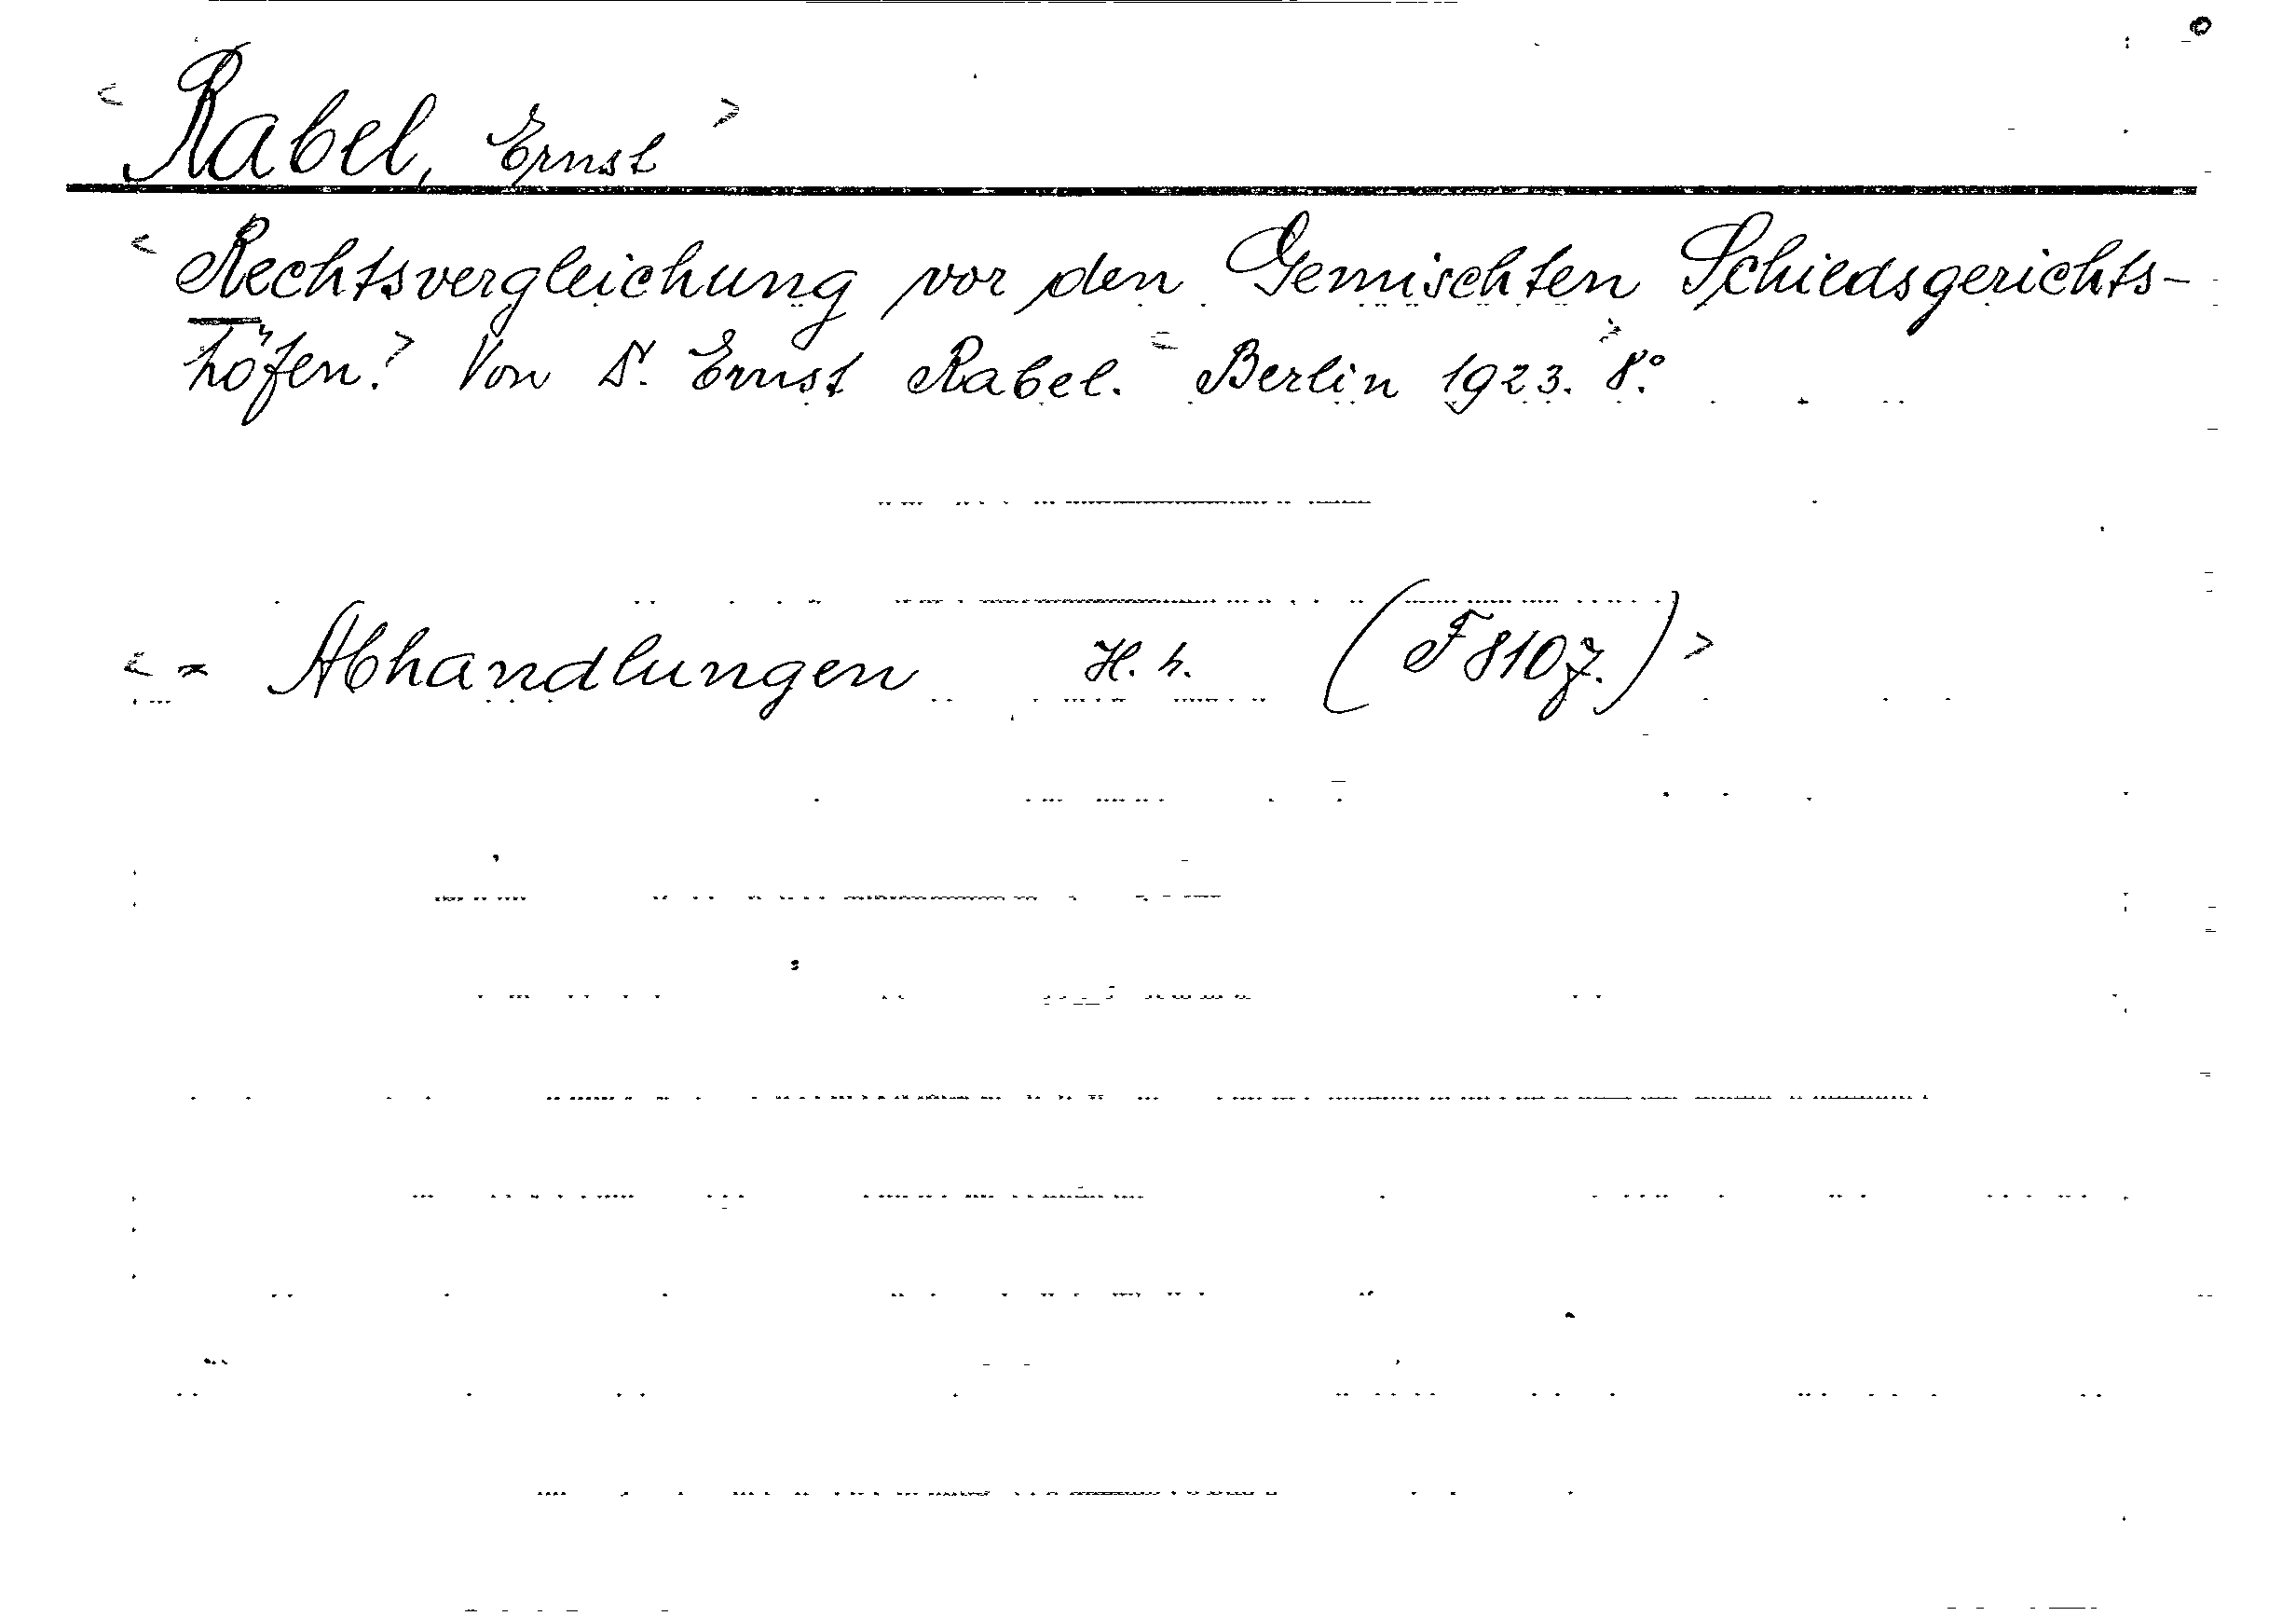 < Rabel, Ernst >
< Rechtsvergleichung vor den Gemischten Schiedsgerichts-
höfen? > Von Dr. Ernst Rabel. < Berlin 1923. > 8.°
< = Abhandlungen H. h. (F 8107.) >